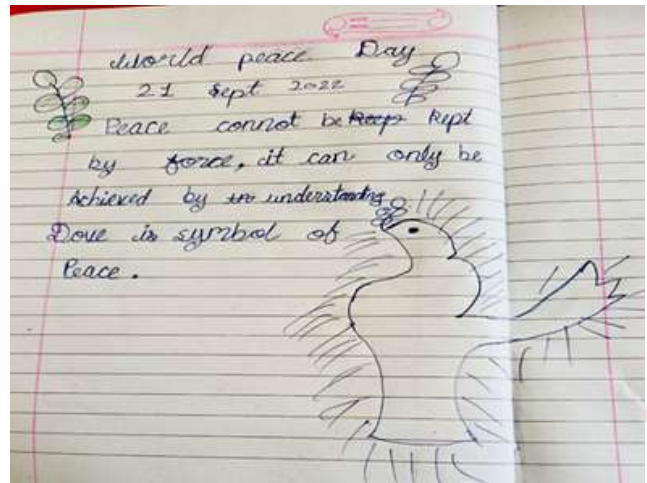 World peace Day
21 Sept 2022
Peace connot be keep kept
by force, it can only be
Achieved by in understanding
Dove is symbol of
Peace.